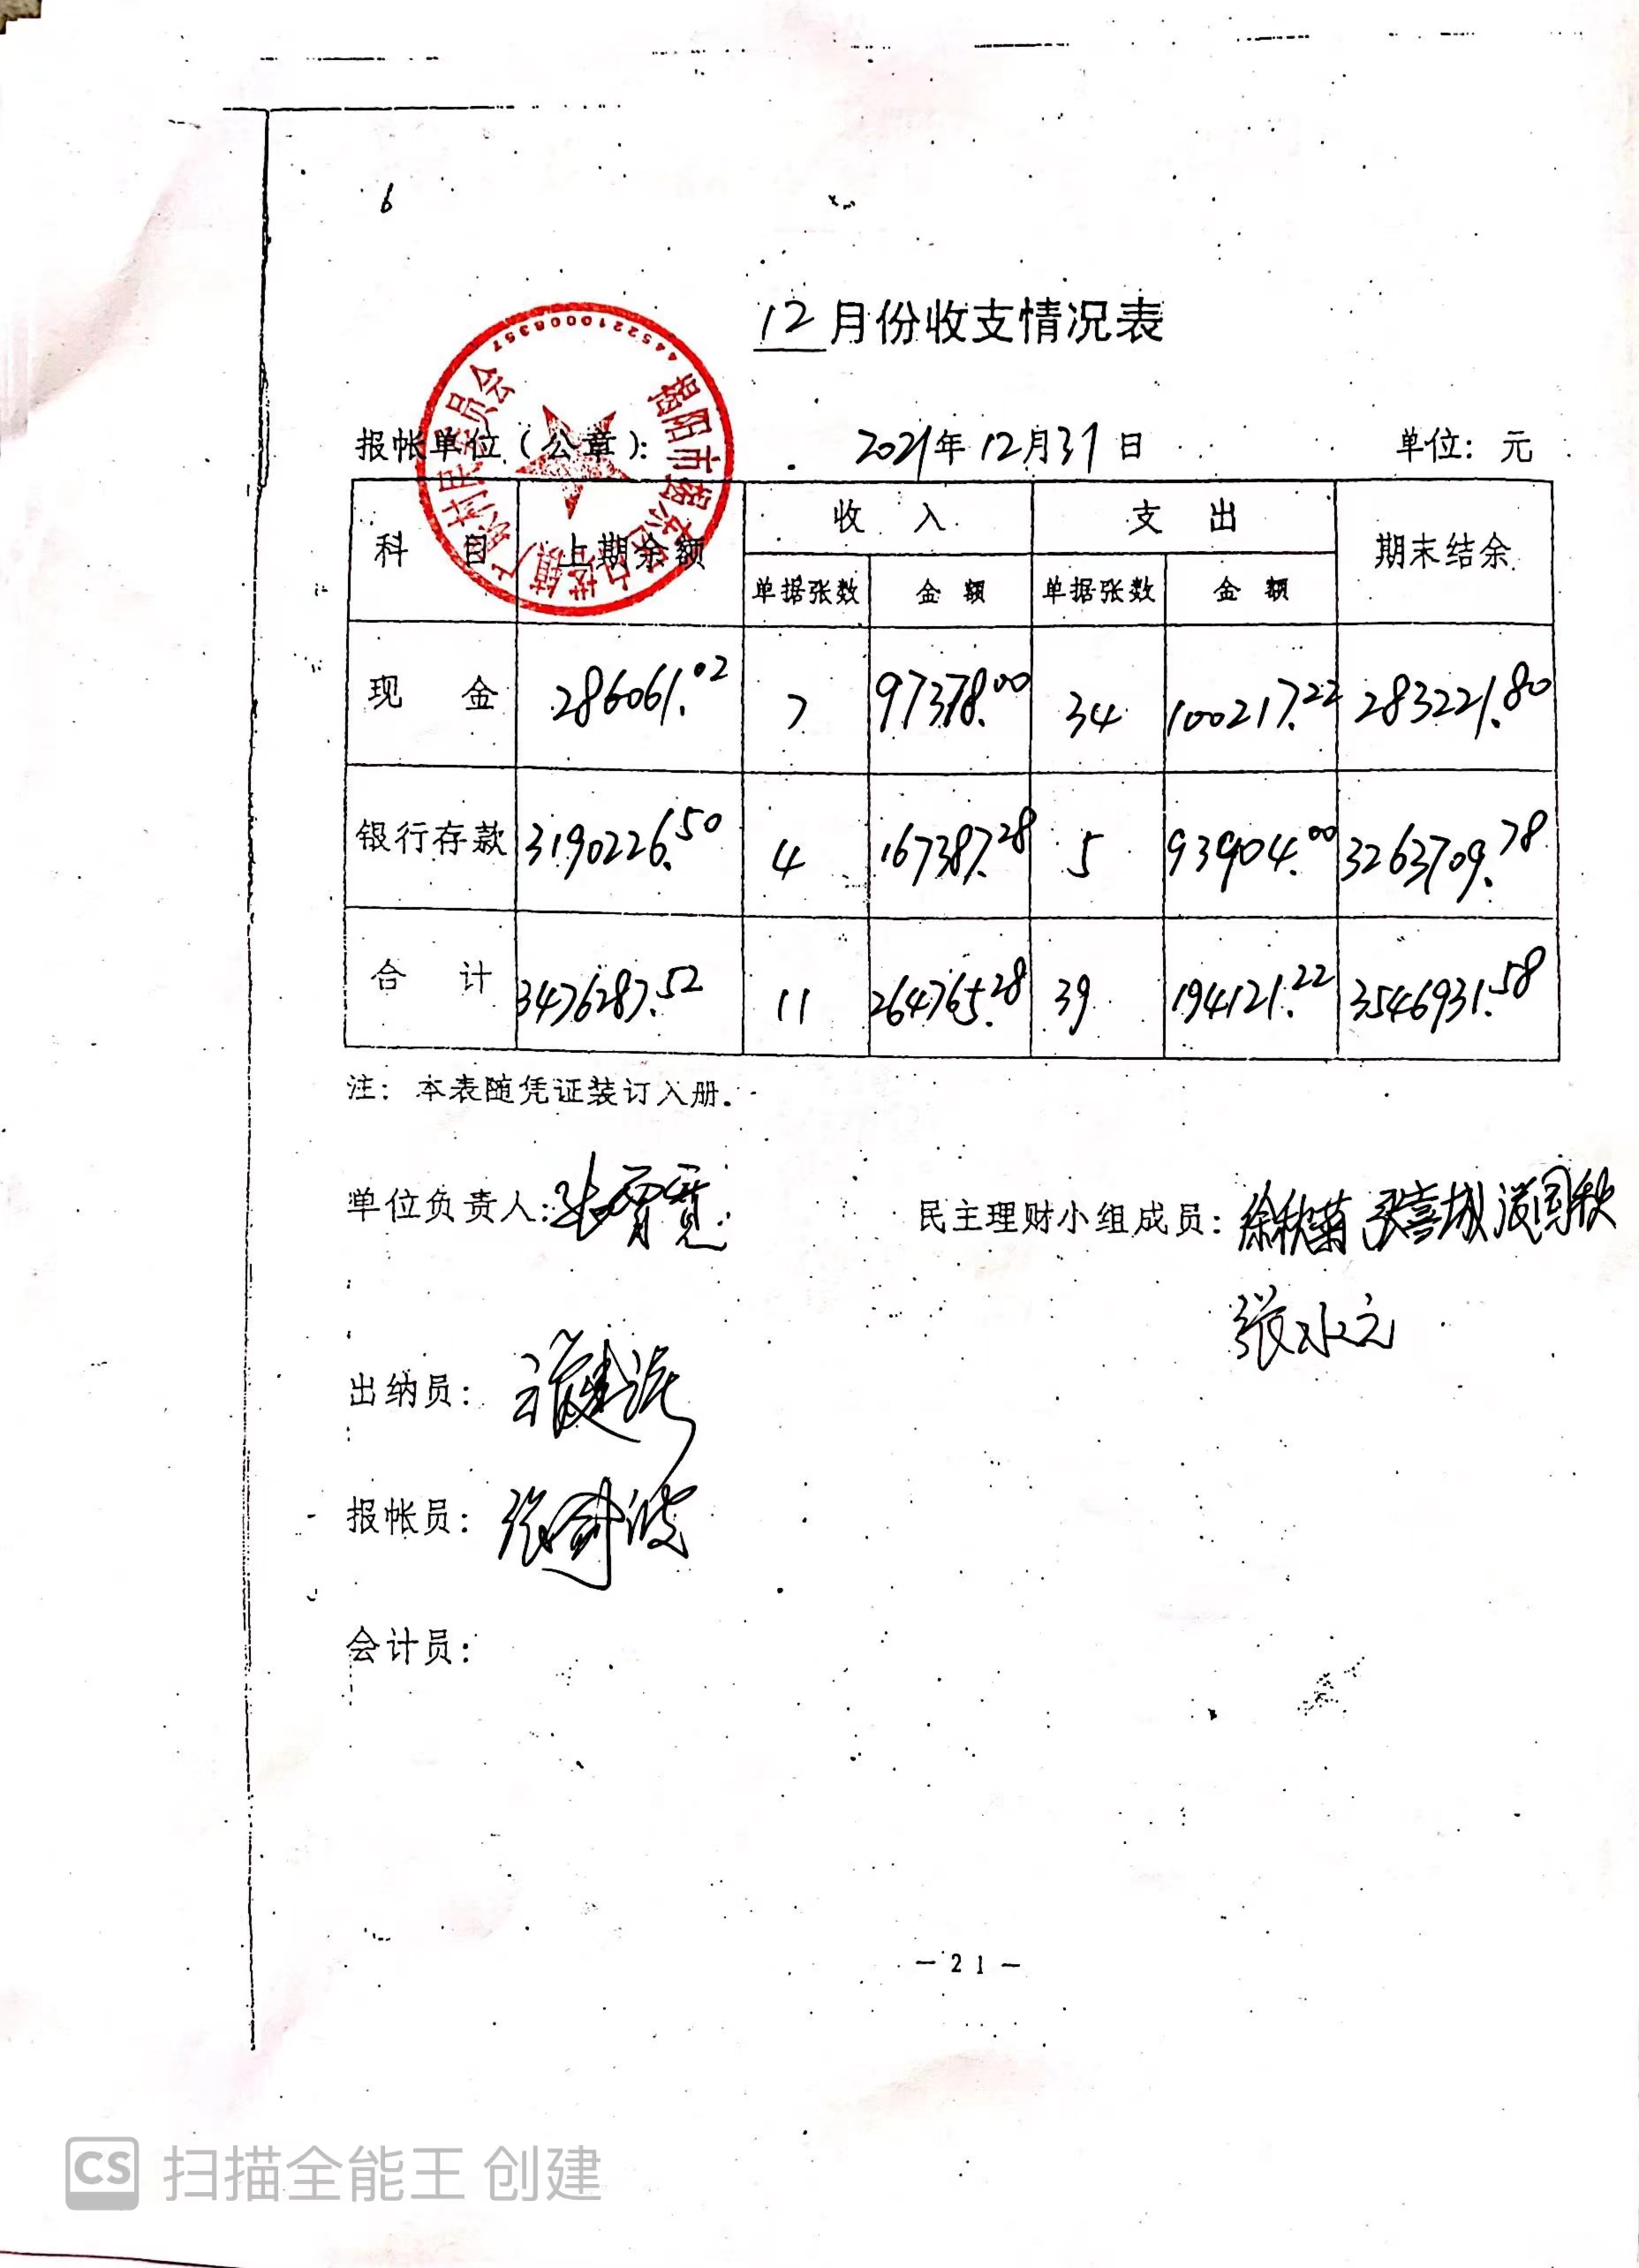 6
12月份收支情况表
报帐单位(公章): 2021年12月31日 单位: 元
科 目 上期余额 收 入 支 出 期末结余
单据张数 金 额 单据张数 金 额
现 金 286061.02 7 97378.00 34 100217.22 283221.80
银行存款 3190226.50 4 167387.28 5 93904.00 3263709.78
合 计 3476287.52 11 264765.28 39 194121.22 3546931.58
注: 本表随凭证装订入册.
单位负责人: 民主理财小组成员: 徐秋菊
张水元
出纳员:
报帐员:
会计员:
-21-
CS 扫描全能王 创建